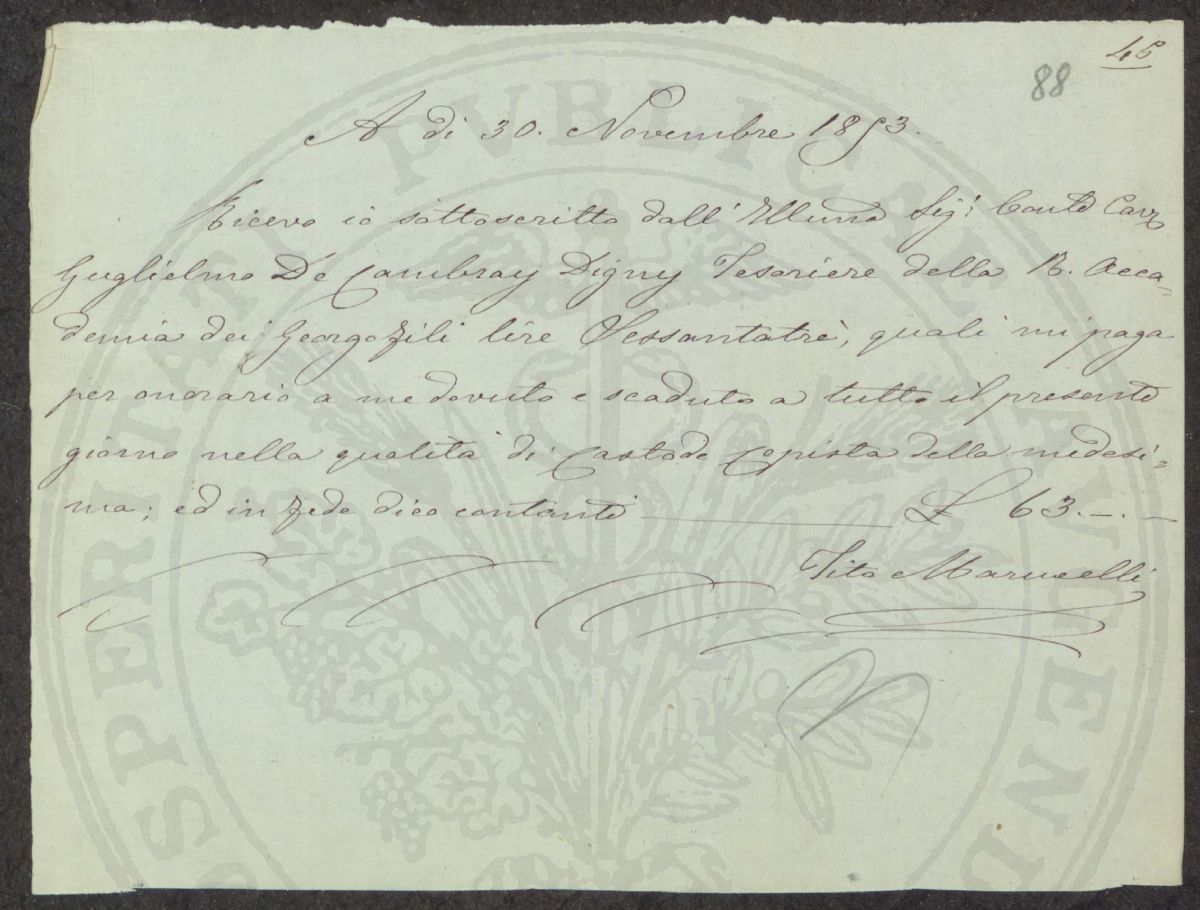 45
88
A dì 30. Novembre 1853.
Ricevo io sottoscritto dall' Illmo Sig.r Conte Cavr.
Guglielmo De Cambray Digny Tesoriere della R. Acca=
demia dei Georgofili lire Sessantatrè, quali mi paga
per onorario a me dovuto e scaduto a tutto il presente
giorno nella qualità di Custode Copista della medesi=
ma; ed in fede dico contanti ——— £ 63.–.–
Tito Marucelli
PROSPERITATI PVBLICAE AVGENDAE